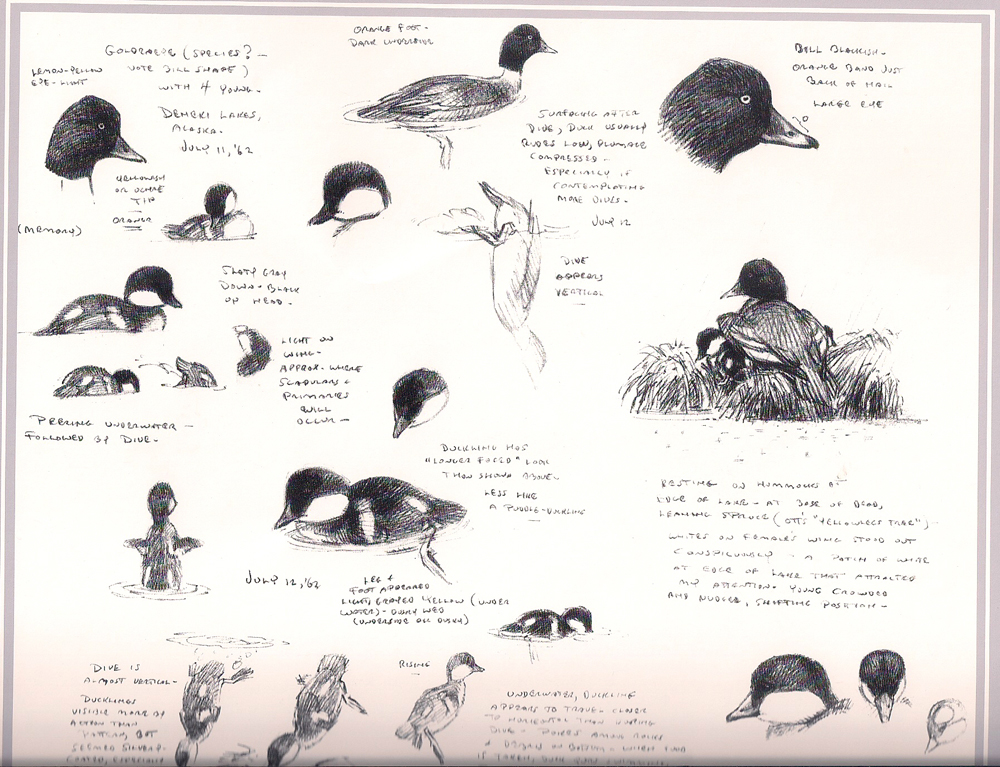 GOLDENEYE (SPECIES? -
NOTE BILL SHAPE)
WITH 4 YOUNG -
LEMON-YELLOW
EYE-LIGHT
ALASKA.
JULY 11, '62
YELLOWISH
OR OCHRE
TIP
ORANGE
(MEMORY)
ORANGE FOOT -
DARK UNDERSIDE
BILL BLACKISH -
ORANGE BAND JUST
BACK OF NAIL
LARGE EYE
SURFACING AFTER
DIVE, DUCK USUALLY
RIDES LOW, PLUMAGE
COMPRESSED -
ESPECIALLY IF
CONTEMPLATING
MORE DIVES -
JULY 12
DIVE
APPEARS
VERTICAL
SLATY GRAY
DOWN - BLACK
ON HEAD -
LIGHT ON
WING -
APPROX. WHERE
SCAPULARS &
PRIMARIES
WILL
OCCUR -
PEERING UNDERWATER -
FOLLOWED BY DIVE -
DUCKLING HAS
"LONGER FACED" LOOK
THAN SHOWN ABOVE -
LESS LIKE
A PUDDLE-DUCKLING
RESTING ON HUMMOCKS AT
EDGE OF LAKE - AT BASE OF DEAD,
LEANING SPRUCE ( "YELLOWLEGS TREE") -
WHITES ON FEMALE'S WING STOOD OUT
CONSPICUOUSLY - A PATCH OF WHITE
AT EDGE OF LAKE THAT ATTRACTED
MY ATTENTION. YOUNG CROWDED
AND NUDGED, SHIFTING POSITION -
JULY 12, '62
LEG &
FOOT APPEARED
LIGHT, GRAYED YELLOW (UNDER
WATER) - DUSKY WEB
(UNDERSIDE ALL DUSKY)
DIVE IS
ALMOST VERTICAL -
DUCKLINGS
VISIBLE MORE BY
ACTION THAN
PATTERN, BUT
SEEMED SILVER-
COATED, ESPECIALLY
RISING
UNDERWATER, DUCKLING
APPEARS TO TRAVEL CLOSER
TO HORIZONTAL THAN DURING
DIVE - POKES AMONG ROCKS
& DEBRIS ON BOTTOM - WHEN FOOD
IS TAKEN,